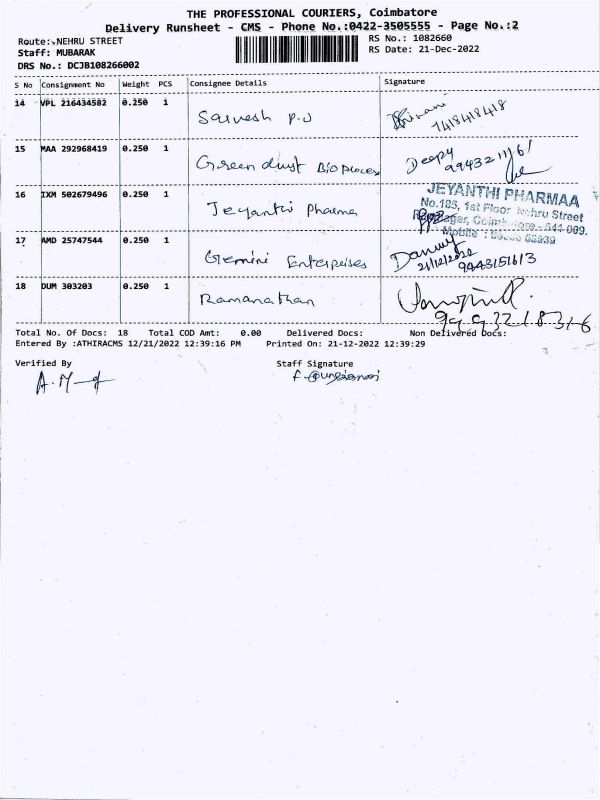 THE PROFESSIONAL COURIERS, Coimbatore
Delivery Runsheet - CMS - Phone No.:0422-3505555 - Page No.:2
Route: NEHRU STREET
RS No.: 1082660
Staff: MUBARAK
RS Date: 21-Dec-2022
DRS No.: DCJB108266002
S No Consignment No Weight PCS Consignee Details Signature
14 VPL 216434582 0.250 1 Sarvesh P.U
7418418418
15 MAA 292968419 0.250 1 Green dust Bio process Deepy
9943211161
16 IXM 502679496 0.250 1 Jeyanthi Pharma
JEYANTHI PHARMAA
No.185, 1st Floor Nehru Street
17 AMD 25747544 0.250 1 Gemini Enterprises
21/12/2022
9443151613
18 DUM 303203 0.250 1 Ramanathan
Total No. Of Docs: 18 Total COD Amt: 0.00 Delivered Docs: Non Delivered Docs:
Entered By :ATHIRACMS 12/21/2022 12:39:16 PM Printed On: 21-12-2022 12:39:29
Verified By Staff Signature